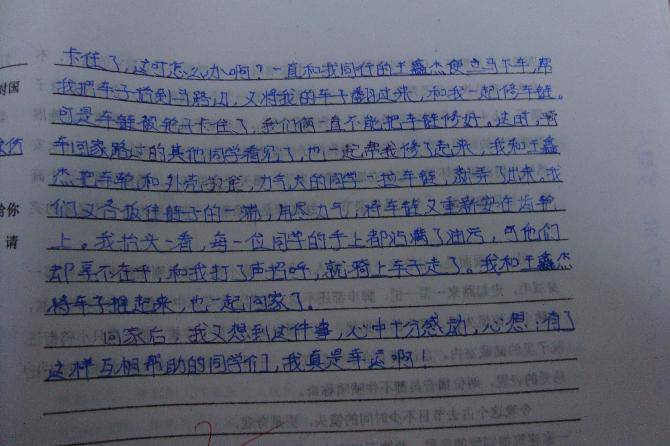 卡住了,这可怎么办啊?一直和我同行的王鑫杰便立马下车,帮
我把车子抬到马路边,又将我的车子翻过来,和我一起修车链。
可是车链被轮子卡住了,我们俩一直不能把车链修好。这时,骑
车回家路过的其他同学看见了,也一起帮我修了起来,我和王鑫
杰把车轮和外壳,力气大的同学一拉车链,就弄了出来,我
们又各扳住链子的一端,用尽力气,将车链又重新安在齿轮
上。我抬头一看,每一位同学的手上都沾满了油污,可他们
却毫不在乎,和我打了声招呼,就骑上车子走了。我和王鑫杰
将车子推起来,也一起回家了。
回家后,我又想到这件事,心中十分感动,心想:有了
这样互相帮助的同学们,我真是幸运啊!
对国
给你
请